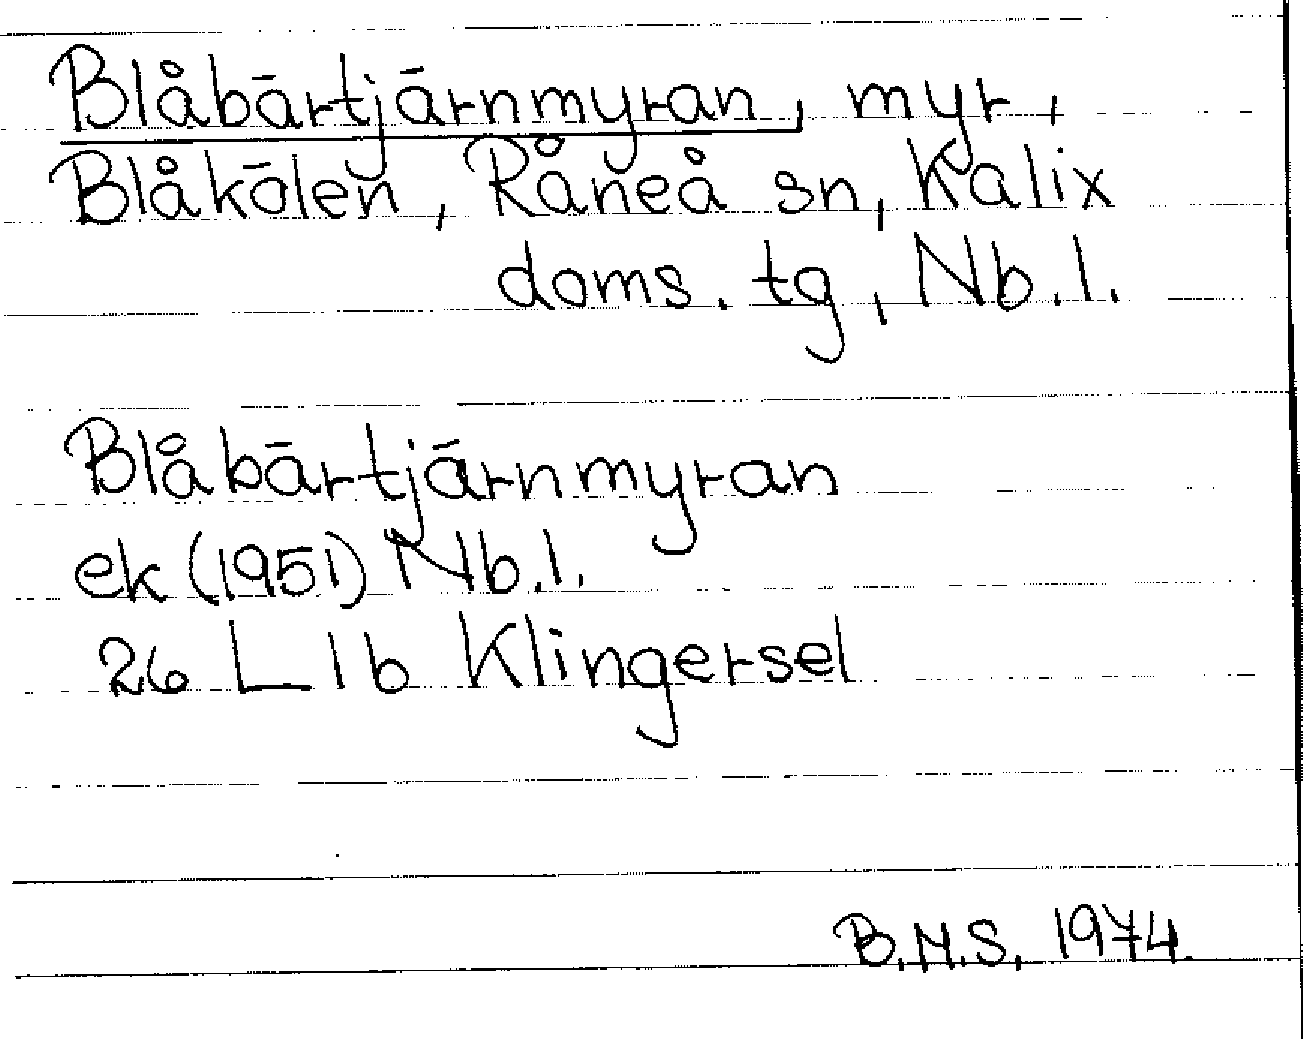 Blåbärtjärnmyran, myr,
Blåkölen, Råneå sn, Kalix
doms. tg, Nb.l.
Blåbärtjärnmyran
ek (1951) Nb.l.
26 L 1 b Klingersel
B.M.S. 1974.